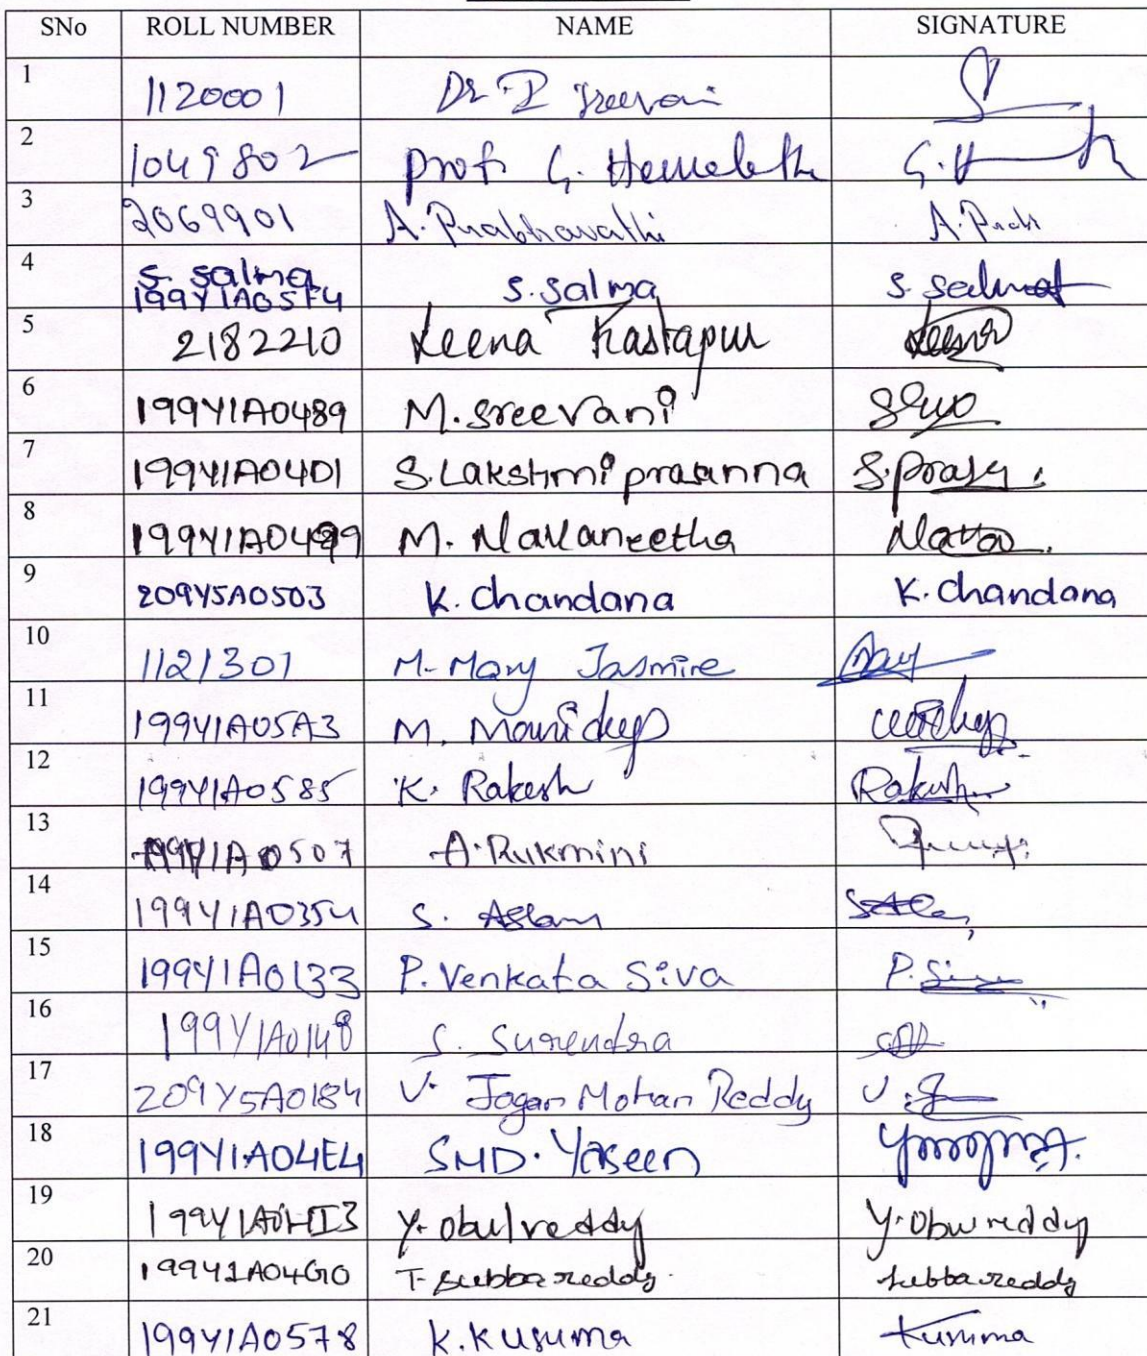 SNo ROLL NUMBER NAME SIGNATURE
1 1120001 Dr. P Sreevani
2 1049802 Prof. G. Hemalatha G.H
3 2069901 A. Prabhavathi A. Prabh
4 S. Salma
199Y1A05F4 S. Salma S. Salma
5 2182210 Leena Kastapur Leena
6 199Y1A0489 M. Sreevani
7 199Y1A04D1 S. Lakshmi prasanna
8 199Y1A0499 M. Navaneetha
9 209Y5A0503 K. Chandana K. Chandana
10 1121301 M. Mary Jasmine Mary
11 199Y1A05A3 M. Mounideep
12 199Y1A0585 K. Rakesh Rakesh
13 199Y1A0507 A. Rukmini
14 199Y1A0354 S. Aslam
15 199Y1A0133 P. Venkata Siva P. Siva
16 199Y1A0148 S. Surendra
17 209Y5A0184 V. Jagan Mohan Reddy
18 199Y1A04E4 SMD. Yaseen
19 Y. obulreddy Y. obulreddy
20 199Y1A04G0 T. Subbareddy Subbareddy
21 199Y1A0578 K. Kusuma Kusuma